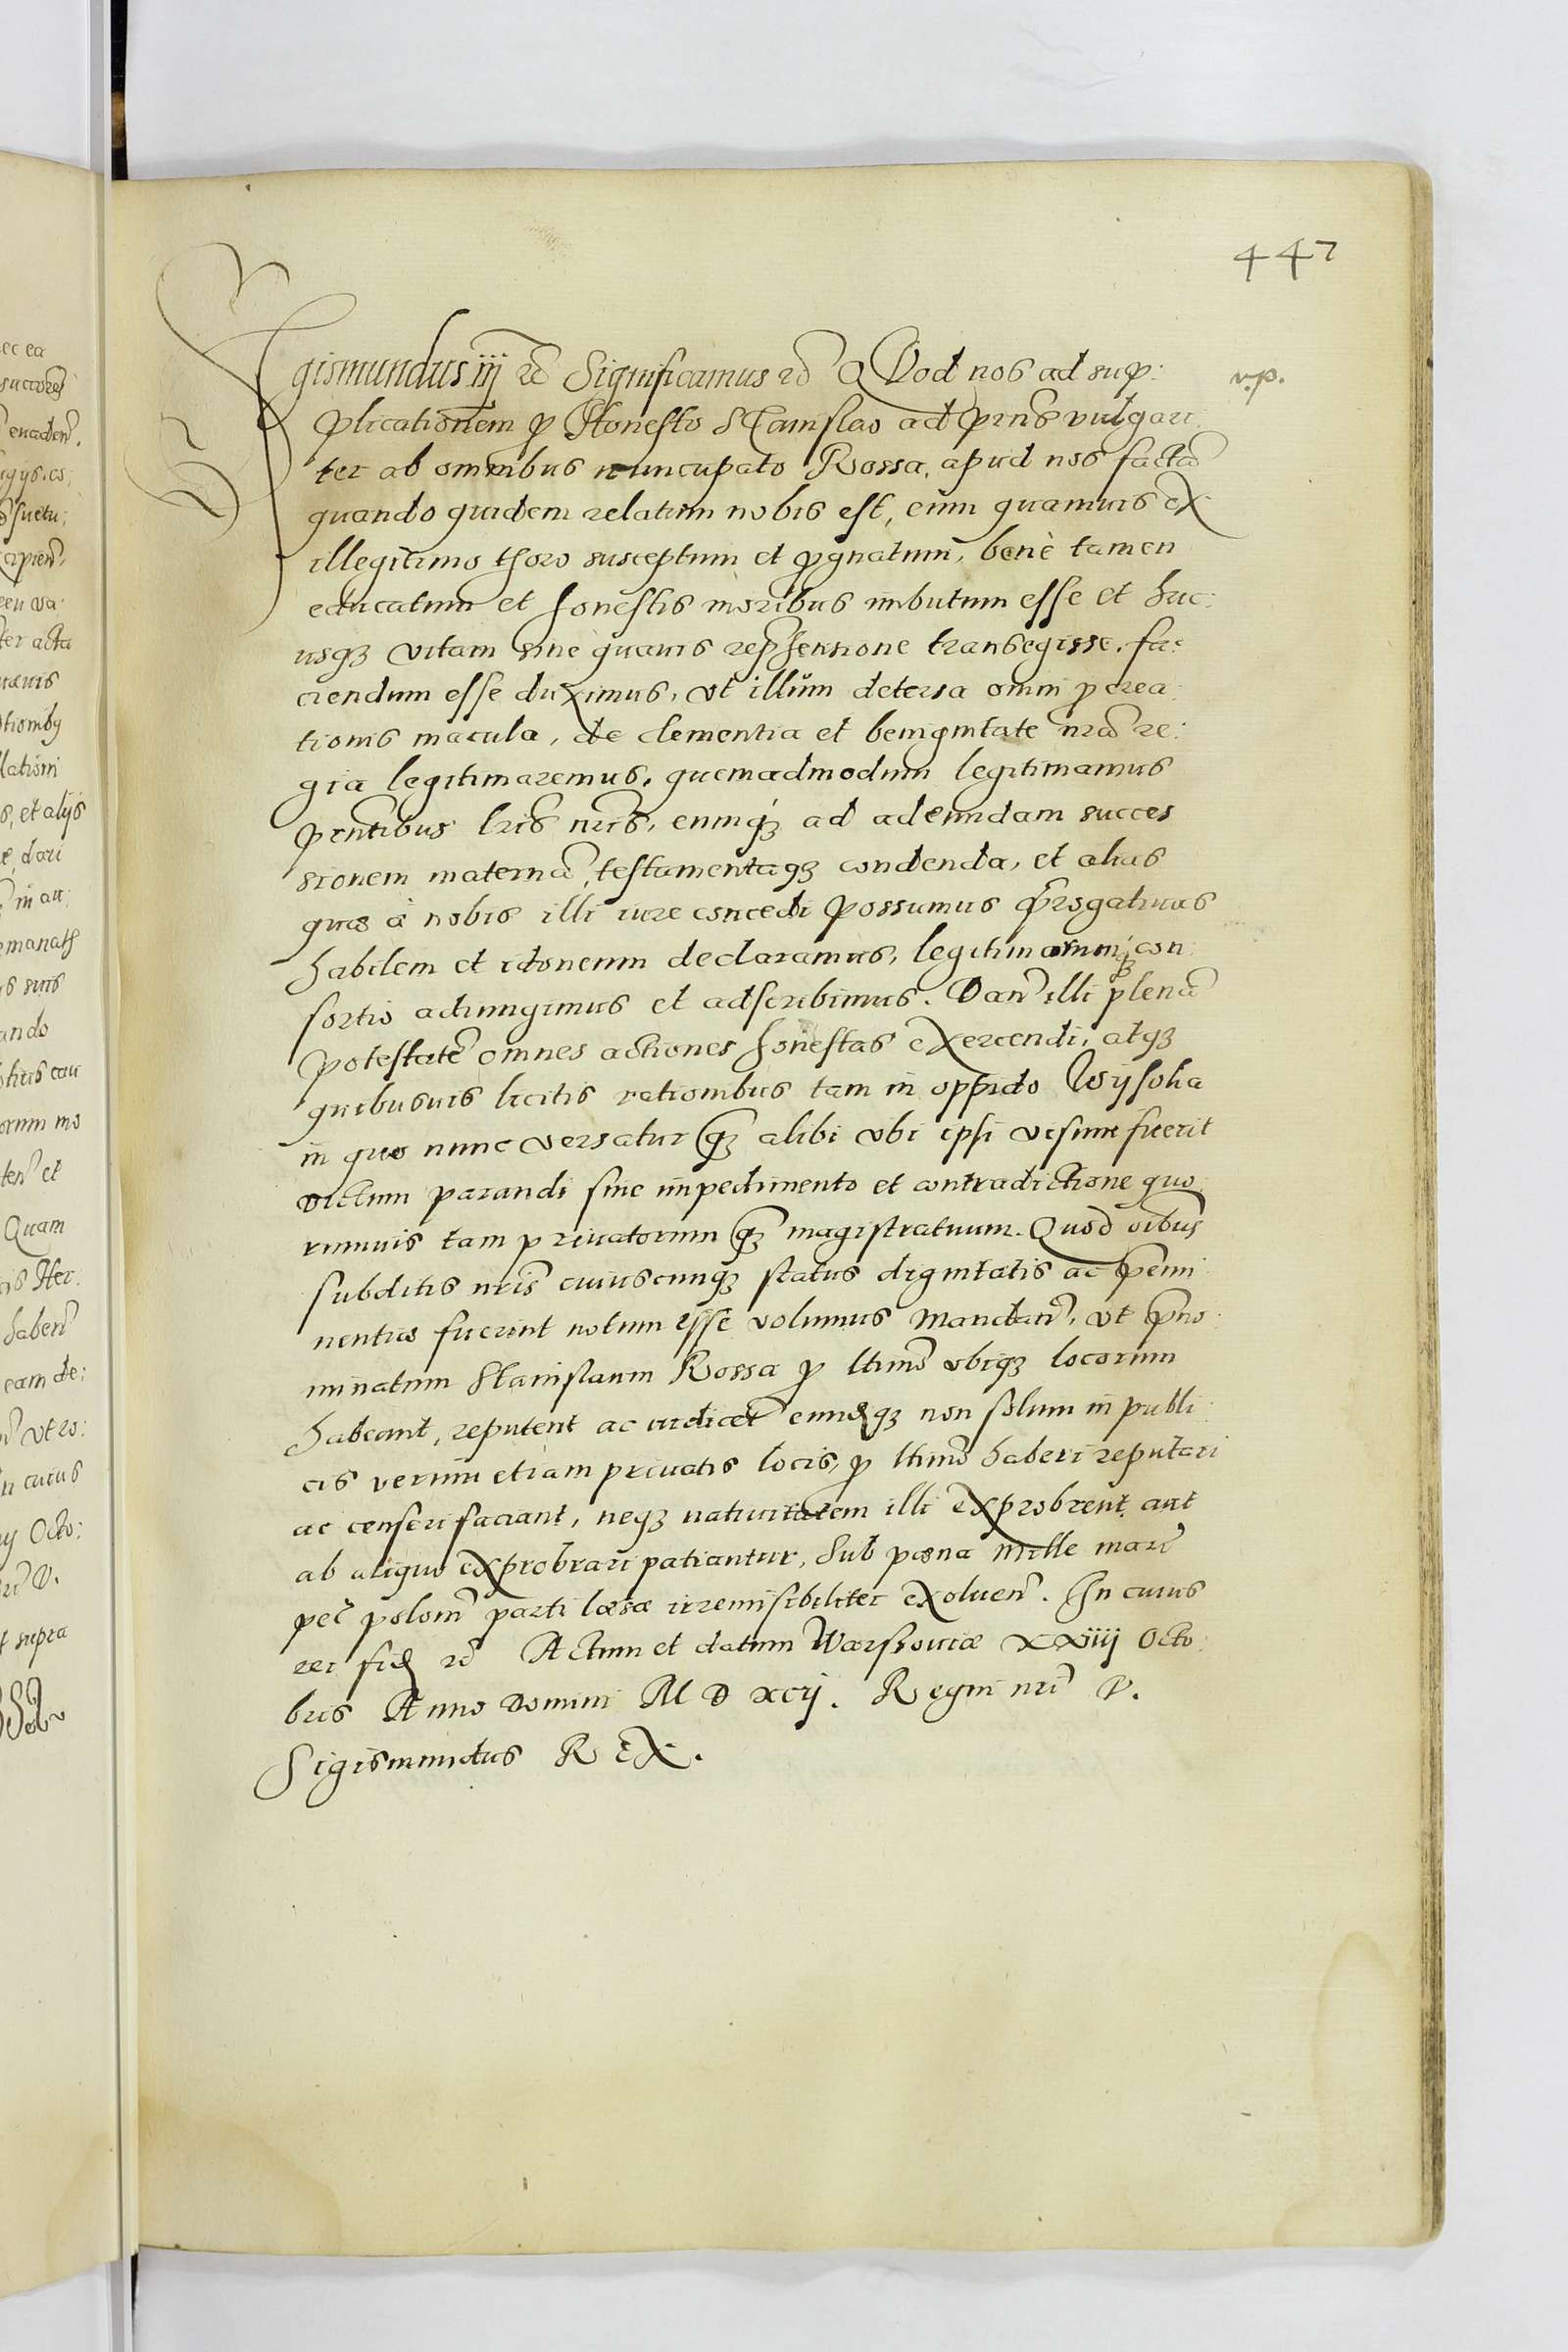 447
Sigismundus iij etc Significamus etc QVod nos ad sup:
v.p.
plicationem p Honesto Stanislao ad prns vulgari
ter ab omnibus nuncupato Rossa, apud nos factã
quando quidem relatum nobis est, eum quamuis ex
illegitimo thoro susceptum et pgnatum, bene tamen
educatum et honestis moribus imbutum esse et huc:
usq3 vitam sine quauis reprhensione transegisse, fa:
ciendum esse duximus, vt illum detersa omni pcrea:
tionis macula, de clementia et benignitate nrã re:
gia legitimaremus, quemadmodum legitimamus
pntibus lris nris, eumq3 ad adeundam succes
sionem maternã, testamentaq3 condenda, et alias
quas à nobis illi iure concedi possumus prerogatiuas
habilem et idoneum declaramus, legitimorumq3 con:
sortio adiungimus et adscribimus. Dan illi plenã
potestatẽ omnes actiones honestas exercendi, atq3
quibusuis licitis rationibus tam in oppido Wijsoka
in quo nunc versatur q3 alibi vbi ipsi visum fuerit
victum parandi sine impedimento et contradictione quo:
rumuis tam priuatorum q3 magistratuum. Quod oibus
subditis nris cuiuscunq3 status dignitatis ac pemi
nentias fuerint notum esse volumus Mandan, vt pno:
minatum Stanislaum Rossa p ltimo vbiq3 locorum
habeant, reputent ac iudicent eundq3 non solum in publi:
cis verum etiam priuatis locis, p ltimo haberi reputari
ac censeri faciant, neq3 natiuitatem illi exprobrent aut
ab aliquo exprobrari patiantur, Sub poena mille marc
pec polon parti læsæ irremisibiliter exoluen. In cuius
rei fid etc Actum et datum Warsouiæ xxiiij Octo:
bris Anno Domini M D xcij. Regni nri V.
Sigismundus REX.